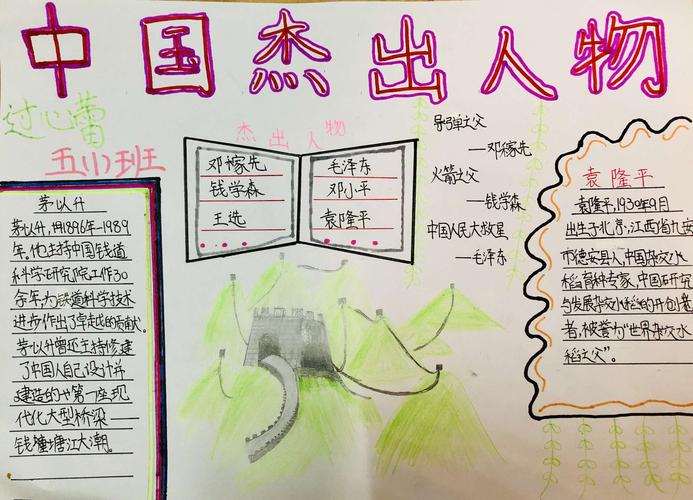 中国杰出人物
过心蕾
五(1)班
茅以升
茅以升,1896年-1989
年,他主持中国铁道
科学研究院工作30
余年,为铁道科学技术
进步作出了卓越的贡献。
茅以升曾还主持修建
了中国人自己设计并
建造的第一座现
代化大型桥梁——
钱塘江大潮。
杰出人物
邓稼先
钱学森
王选
毛泽东
邓小平
袁隆平
导弹之父
——邓稼先
火箭之父
——钱学森
中国人民大救星
——毛泽东
袁隆平
袁隆平,1930年9月
出生于北京,江西省九安
市德安县人,中国杂交水
稻育种专家,中国研究
与发展杂交水稻的开创者
者,被誉为“世界杂交水
稻之父”。